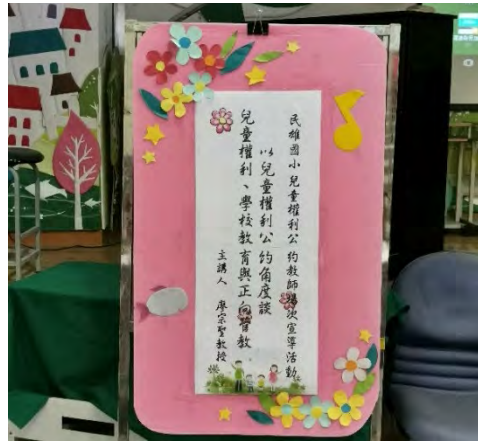 民雄國小兒童權利公約教師場次宣導活動
以兒童權利公約角度談
兒童權利、學校教育與正向管教
主講人 廖宗聖教授